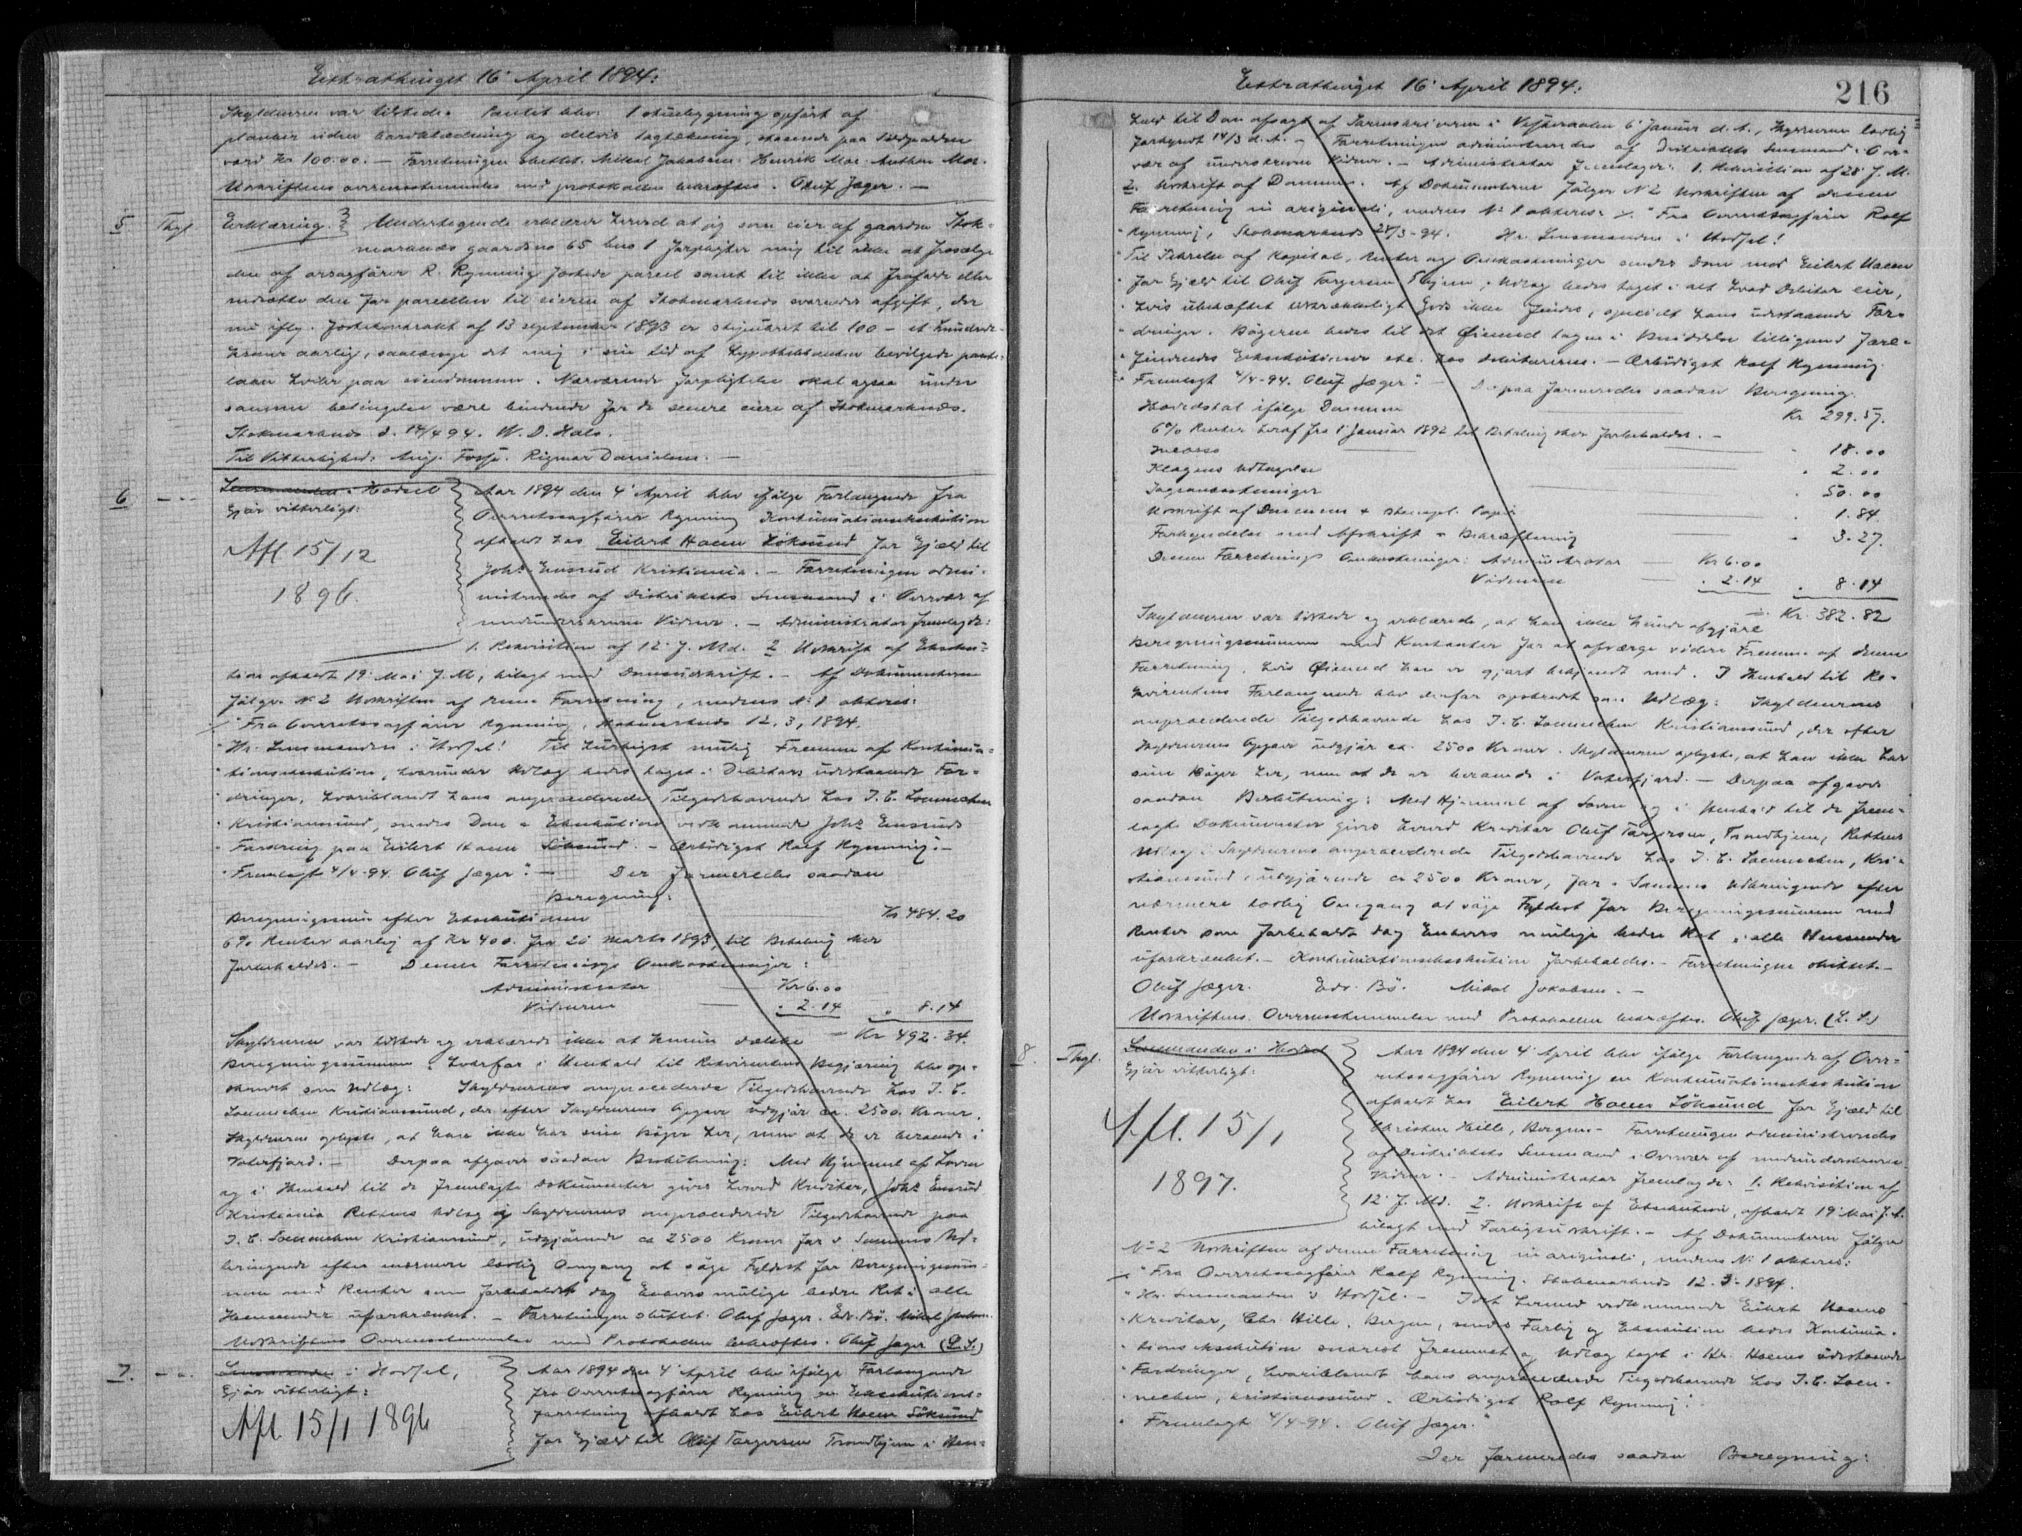 Extrathinget 16' April 1894:
Skyldneren var tilstede. Pantet blev: 1 stuebygning opført af
planker uden bordklædning og delvis tagtækning, staaende paa
værd Kr 100.00. — Forretningen sluttet. Mikal Jakobsen. Henrik Moe. Anthon Moe.
Udskriftens overensstemmelse med protokollen bekræftes. Oluf Jæger. —
5 Thgl. Erklæring. Undertegnede erklærer herved at jeg som eier af gaarden Stok-
marknes gaardsno 65 bno 1 forpligter mig til ikke at frasælge
den af orsagfører R. Rynning fæstede parcel samt til ikke at forhøie eller
nedsætte den for parcellen til eieren af Stokmarknes svarende afgift, der
nu ifølg. fæstekontrakt af 13 september 1893 er stipuleret til 100 – et hundrede
kroner aarlig, saalænge det mig i sin tid af Hypothekbanken bevilgede pante-
laan hviler paa eiendommen. Nærværende forpligtelse skal ogsaa under
samme betingelse være bindende for de senere eiere af Stokmarknes.
Stokmarknes d. 14/4 94. W. D. Hals.
Til Vitterlighed: Aug. Fosse. Rigmor Danielsen. —
6 Lensmanden i Hadsel
gjør vitterligt:
Afl 15/12
1896.
Aar 1894 den 4' April blev ifølge Forlangende fra
Overretssagfører Rynning Kontinuationsexekution
afholdt hos Eilert Hoem Löksund for Gjæld til
Johs Ensrud Kristiania. — Forretningen admi-
nistreredes af Distriktets Lensmand i Overvær af
medunderskrevne Vidner. — Administrator fremlagde:
1. Rekvisition af 12' f. Md. 2 Udskrift af Exeku-
tion afholdt 19' Mai f. A., bilagt med Domsudskrift. — Af Dokumenterne
følger No 2 Udskriften af denne Forretning, medens No 1 akteres:
"Fra Overretssagfører Rynning, Stokmarknes 12. 3. 1894.
"Hr. Lensmanden i Hadsel! Til hurtigst mulig Fremme af Kontinua-
"tionsexekution, hvorunder Udlæg bedes taget i Debitors udestaaende For-
"dringer, hvoriblandt hans Tilgodehavende hos J. C. Loennechen
"Kristiansund, sendes Dom & Exekution vedkommende Johs Ensruds
"Fordring paa Eilert Hoem Löksund. — Ærbödigst Rolf Rynning. —
"Fremlagt 4/4-94. Oluf Jæger". — Der formeredes saadan
Beregning:
Beregningssum efter Exekutionen Kr 484.20
6% Renter aarlig af Kr 400. fra 20 Marts 1893 til Betaling sker
forbeholdes. — Denne Forretnings Omkostninger:
Administrator — Kr 6.00
Vidnerne — " 2.14 " 8.14
— Kr 492.34.
Skyldneren var tilstede og erklærede ikke at kunne dække
Beregningssummen, hvorfor i Henhold til Rekvirentens Begjæring blev op-
skrevet som Udlæg: Skyldnerens Tilgodehavende hos J. C.
Loennechen Kristiansund, der efter Skyldnerens Opgave udgjør ca. 2500 Kroner.
Skyldneren oplyste, at han ikke har sine Bøger her, men at de er beroende i
Vaterfjord. — Derpaa afgaves saadan Beslutning: Med Hjemmel af Loven
og i Henhold til de fremlagte Dokumenter gives herved Kreditor, Johs Ensrud
Kristiania Rettens Udlæg i Skyldnerens Tilgodehavende paa
J. C. Loennechen Kristiansund, udgjørende ca 2500 Kroner for i Sammes Ud-
bringende efter nærmere lovlig Omgang at søge Fyldest for Beregningssum-
men med Renter som forbeholdt dog Enhvers mulige bedre Ret i alle
Henseender uforkrænket. — Forretningen sluttet. Oluf Jæger. Edv. Bö. Mikal Jakobsen.
Udskriftens Overensstemmelse med Protokollen bekræftes. Oluf Jæger (L.S.)
7. Lensmanden i Hadsel,
gjør vitterligt:
Afl 15/1 1896
Aar 1894 den 4' April blev ifølge Forlangende
fra Overretssagfører Rynning en Exekutions-
forretning afholdt hos Eilert Hoem Löksund
for Gjæld til Oluf Torgersen Trondhjem i Hen-
Extrathinget 16' April 1894.
216
hold til Dom afsagt af Sorenskriveren i Vesteraalen 6' Januar d. A., Skyldneren lovlig
forkyndt 14/3 d. A. — Forretningen administreredes af Distriktets Lensmand i Over-
vær af underskrevne Vidner. — Administrator fremlagde: 1. Rekvisition af 28' f. M.
2. Udskrift af Dommen. Af Dokumenterne følger No 2 Udskriften af denne
Forretning in originali, medens No 1 akteres: "Fra Overretssagfører Rolf
"Rynning, Stokmarknes 28/3-94. Hr. Lensmanden i Hadsel!
"Til Dækkelse af Kapital, Renter og Omkostninger sendes Dom mod Eilert Hoem
"for Gjæld til Oluf Torgersen Thjem. Udlæg bedes taget i alt hvad Debitor eier,
"hvis ubehæftet tilstrækkeligt Gods ikke findes, specielt hans udestaaende For-
"dringer. Bøgerne bedes til det Øiemed tagne i Besiddelse tilligemed fore-
"findendes Exekutioner etc. hos debitorerne. — Ærbödigst Rolf Rynning
"Fremlagt 4/4-94. Oluf Jæger". — Derpaa formeredes saadan Beregning:
Hovedstol ifølge Dommen Kr 299.57.
6% Renter heraf fra 1' Januar 1892 til Betaling sker forbeholdes. —
Incasso " 18.00
Klagens Udtagelse " 2.00
Sagsomkostninger " 50.00
Udskrift af Dommen & stempl. Papir " 1.84
Forkyndelse med Afskrift & Bekræftning " 3.27.
Denne Forretnings Omkostninger: Administrator — Kr 6.00
Vidnerne — " 2.14 " 8.14
— Kr. 382.82
Skyldneren var tilstede og erklærede, at han ikke kunde afgjøre
Beregningssummen med Kontanter for at afværge videre Fremme af denne
Forretning, hvis Øiemed han er gjort bekjendt med. I Henhold til Re-
kvirentens Forlangende blev derfor opskrevet som Udlæg: Skyldnerens
Tilgodehavende hos J. C. Loennechen Kristiansund, der efter
Skyldnerens Opgave udgjør ca. 2500 Kroner. Skyldneren oplyste, at han ikke har
sine Bøger her, men at de er beroende i Vaterfjord. — Derpaa afgaves
saadan Beslutning: Med Hjemmel af Loven og i Henhold til de frem-
lagte Dokumenter gives herved Kreditor Oluf Torgersen, Trondhjem, Rettens
Udlæg i Skyldnerens Tilgodehavende hos J. C. Loennechen, Kri-
stiansund udgjørende ca 2500 Kroner, for i Sammes Udbringende efter
nærmere lovlig Omgang at søge Fyldest for Beregningssummen med
Renter som forbeholdt dog Enhvers mulige bedre Ret i alle Henseender
uforkrænket. — Kontinuationsexekution forbeholdes. — Forretningen sluttet. —
Oluf Jæger. Edv. Bö. Mikal Jakobsen. —
Udskriftens Overensstemmelse med Protokollen bekræftes. Oluf Jæger. (L.S.)
8. Thgl. Lensmanden i Hadsel
gjør vitterligt:
Afl. 15/1
1897.
Aar 1894 den 4' April blev ifølge Forlangende af Over-
retssagfører Rynning en Kontinuationsexekution
afholdt hos Eilert Hoem Löksund for Gjæld til
Christen Hille, Bergen. — Forretningen administreredes
af Distriktets Lensmand i Overvær af medunderskrevne
Vidner. — Administrator fremlagde: 1. Rekvisition af
12' f. Md. 2. Udskrift af Exekution, afholdt 19' Mai f. A.
bilagt med Forligsudskrift. — Af Dokumenterne følger
No 2 Udskriften af denne Forretning in originali, medens No 1 akteres:
"Fra Overretssagfører Rolf Rynning. Stokmarknes 12. 3. 1894.
"Hr. Lensmanden i Hadsel. — I det hermed vedkommende Eilert Hoems
"Kreditor, Chr. Hille, Bergen, sendes Forlig og Exekution bedes Kontinua-
"tionsexekution snarest fremmet og Udlæg taget i Hr. Hoems udestaaende
"Fordringer, hvoriblandt hans Tilgodehavende hos J. C. Loen-
"nechen, Kristiansund. Ærbödigst Rolf Rynning."
"Fremlagt 4/4-94. Oluf Jæger."
Der formeredes saadan Beregning: